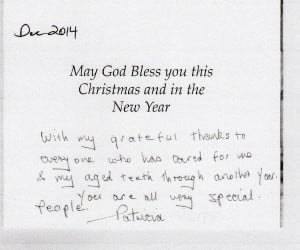 Dec 2014
May God Bless you this
Christmas and in the
New Year
With my grateful thanks to
everyone who has cared for me
& my aged teeth through another year.
You are all very special
people.
Patricia